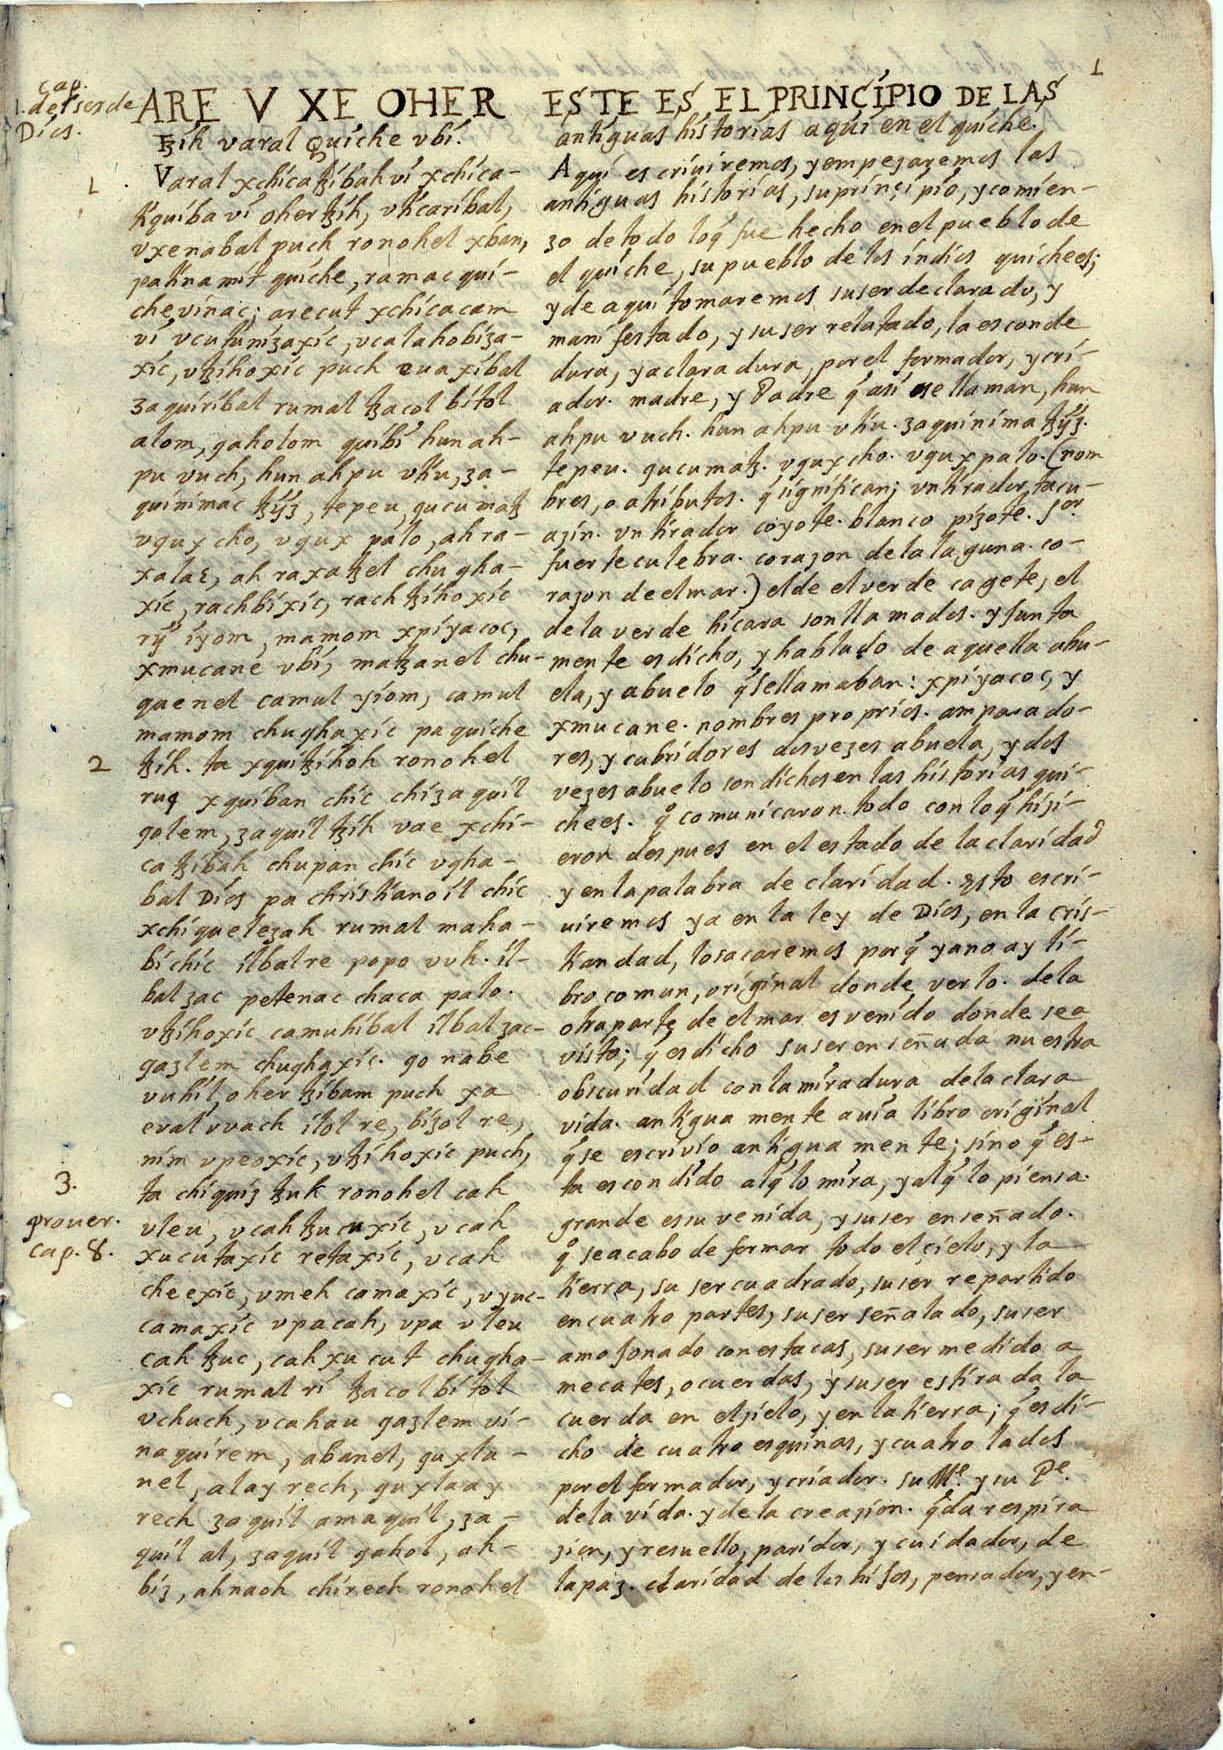 1
cap.
1. del ser de
Dios.
ARE V XE OHER
ꜩih varal Quiche vbi.
1
Varal xchicaꜩibah vi xchica-
tiquiba vi oher ꜩih, vticaribal,
vxenabal puch ronohel xban,
pa tinamit quiche, ramac qui-
che vinac; arecut xchicacam
vi vcutuniзaxic, vcalahobiзa-
xic, vꜩihoxic puch euaxibal
зaquiribal rumal ꜩacol bitol
alom, qaholom quibi hun ah-
pu vuch, hun ahpu vtiu, зa-
quinimac ꜩÿз, tepeu, qucumaꜩ
vqux cho, vqux palo, ah ra-
xalaɛ, ah raxaꜩel chugha-
xic, rachbixic, rach ꜩihoxic
rÿ iyom, mamom xpiyacoc,
xmucane vbi, maꜩanel chu-
quenel camul yiom, camul
mamom chughaxic pa quiche
2
ꜩih. ta xquiꜩihoh ronohel
ruq xquiban chic chiзaquil
qolem, зaquil ꜩih vae xchi-
caꜩibah chupan chic vgha-
bal Dios pa christianoil chic
xchiqueleзah rumal maha-
bi chic ilbal re popo vuh. il-
bal зac petenac chaca palo.
vꜩihoxic camuhibal ilbal зac-
qaзlem chughaxic. qo nabe
vuhil, oher ꜩibam puch xa
eval vvach ilol re, biзol re,
nim vpeoxic, vꜩihoxic puch,
3.
ta chiquiз ꜩuk ronohel cah
Prouer.
cap. 8.
vleu, vcah ꜩucuxic, vcah
xucutaxic retaxic, vcah
cheexic, vmeh camaxic, vyuc-
camaxic vpacah, vpa vleu
cah ꜩuc, cah xucut chugha-
xic rumal ri ꜩacol bitol
vchuch, vcahau qaзlem vi-
naquirem, abanel, quxla-
nel, alay rech, quxlaay
rech зaquil amaquil, зa-
quil al, зaquil qahol, ah-
biз, ahnaoh chirech ronohel
ESTE ES EL PRINCIPIO DE LAS
antiguas historias aqui en el quiche.
Aqui escriuiremos, y empezaremos las
antiguas historias, su principio, y comien-
zo de todo loq̃ fue hecho en el pueblo de
el quiche, su pueblo de los indios quichees;
y de aqui tomaremos su ser declarado, y
manifestado, y su ser relatado, la esconde
dura, y aclaradura, por el formador, y cri-
ador. madre, y Padre q̃ asi se llaman, hun
ahpu vuch. hun ahpu vtiu. зaquinima ꜩÿз.
tepeu. qucumaꜩ. vqux cho. vqux palo. (nom
bres, o atributos. q̃ significan; vn tirador, tacu-
azin. vn tirador coyote. blanco pizote. Sor
fuerte culebra. corazon de la laguna. co-
razon de el mar.) el de el verde cagete, el
de la verde hicara son llamados. y junta
mente es dicho, y hablado de aquella abu-
ela, y abuelo q̃ se llamaban: xpiyacoc, y
xmucane. nombres proprios. amparado-
res, y cubridores dos vezes abuela, y dos
vezes abuelo son dichos en las historias qui-
chees. q̃ comunicaron. todo con loq̃ hizi-
eron despues en el estado de la claridad
y en la palabra de claridad. Esto escri-
uiremos ya en la ley de Dios, en la cris-
tiandad, lo sacaremos porq̃ ya no ay li-
bro comun, original donde verlo. de la
otra parte de el mar es venido donde sea
visto; q̃ es dicho su ser enseñada nuestra
obscuridad con la miradura de la clara
vida. antigua mente auia libro original
q̃ se escrivio antigua mente; sino q̃ es-
ta escondido alq̃ lo mira, y alq̃ lo piensa.
grande es su venida, y su ser enseñado.
q̃ se acabo de formar todo el çielo, y la
tierra, su ser cuadrado, su ser repartido
en cuatro partes, su ser señalado, su ser
amojonado con estacas, su ser medido a
mecates, o cuerdas, y su ser estirada la
cuerda en el zielo, y en la tierra; q̃ es di-
cho de cuatro esquinas, y cuatro lados
por el formador, y criador. su Me. y su Pe.
de la vida. y de la creazion. q̃ da respira
zion, y resuello, paridor, y cuidador, de
la paz. claridad de los hijos, pensador, y en-